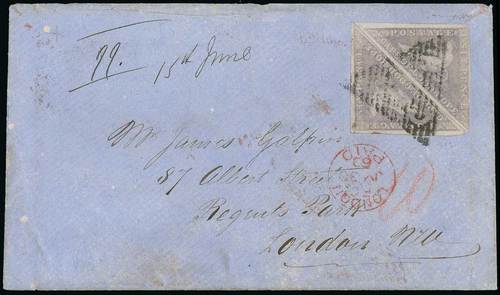 15th June
POSTAGE
Mr. James Galpin
87 Albert Street
LONDON
PAID
Regents Park
London NW